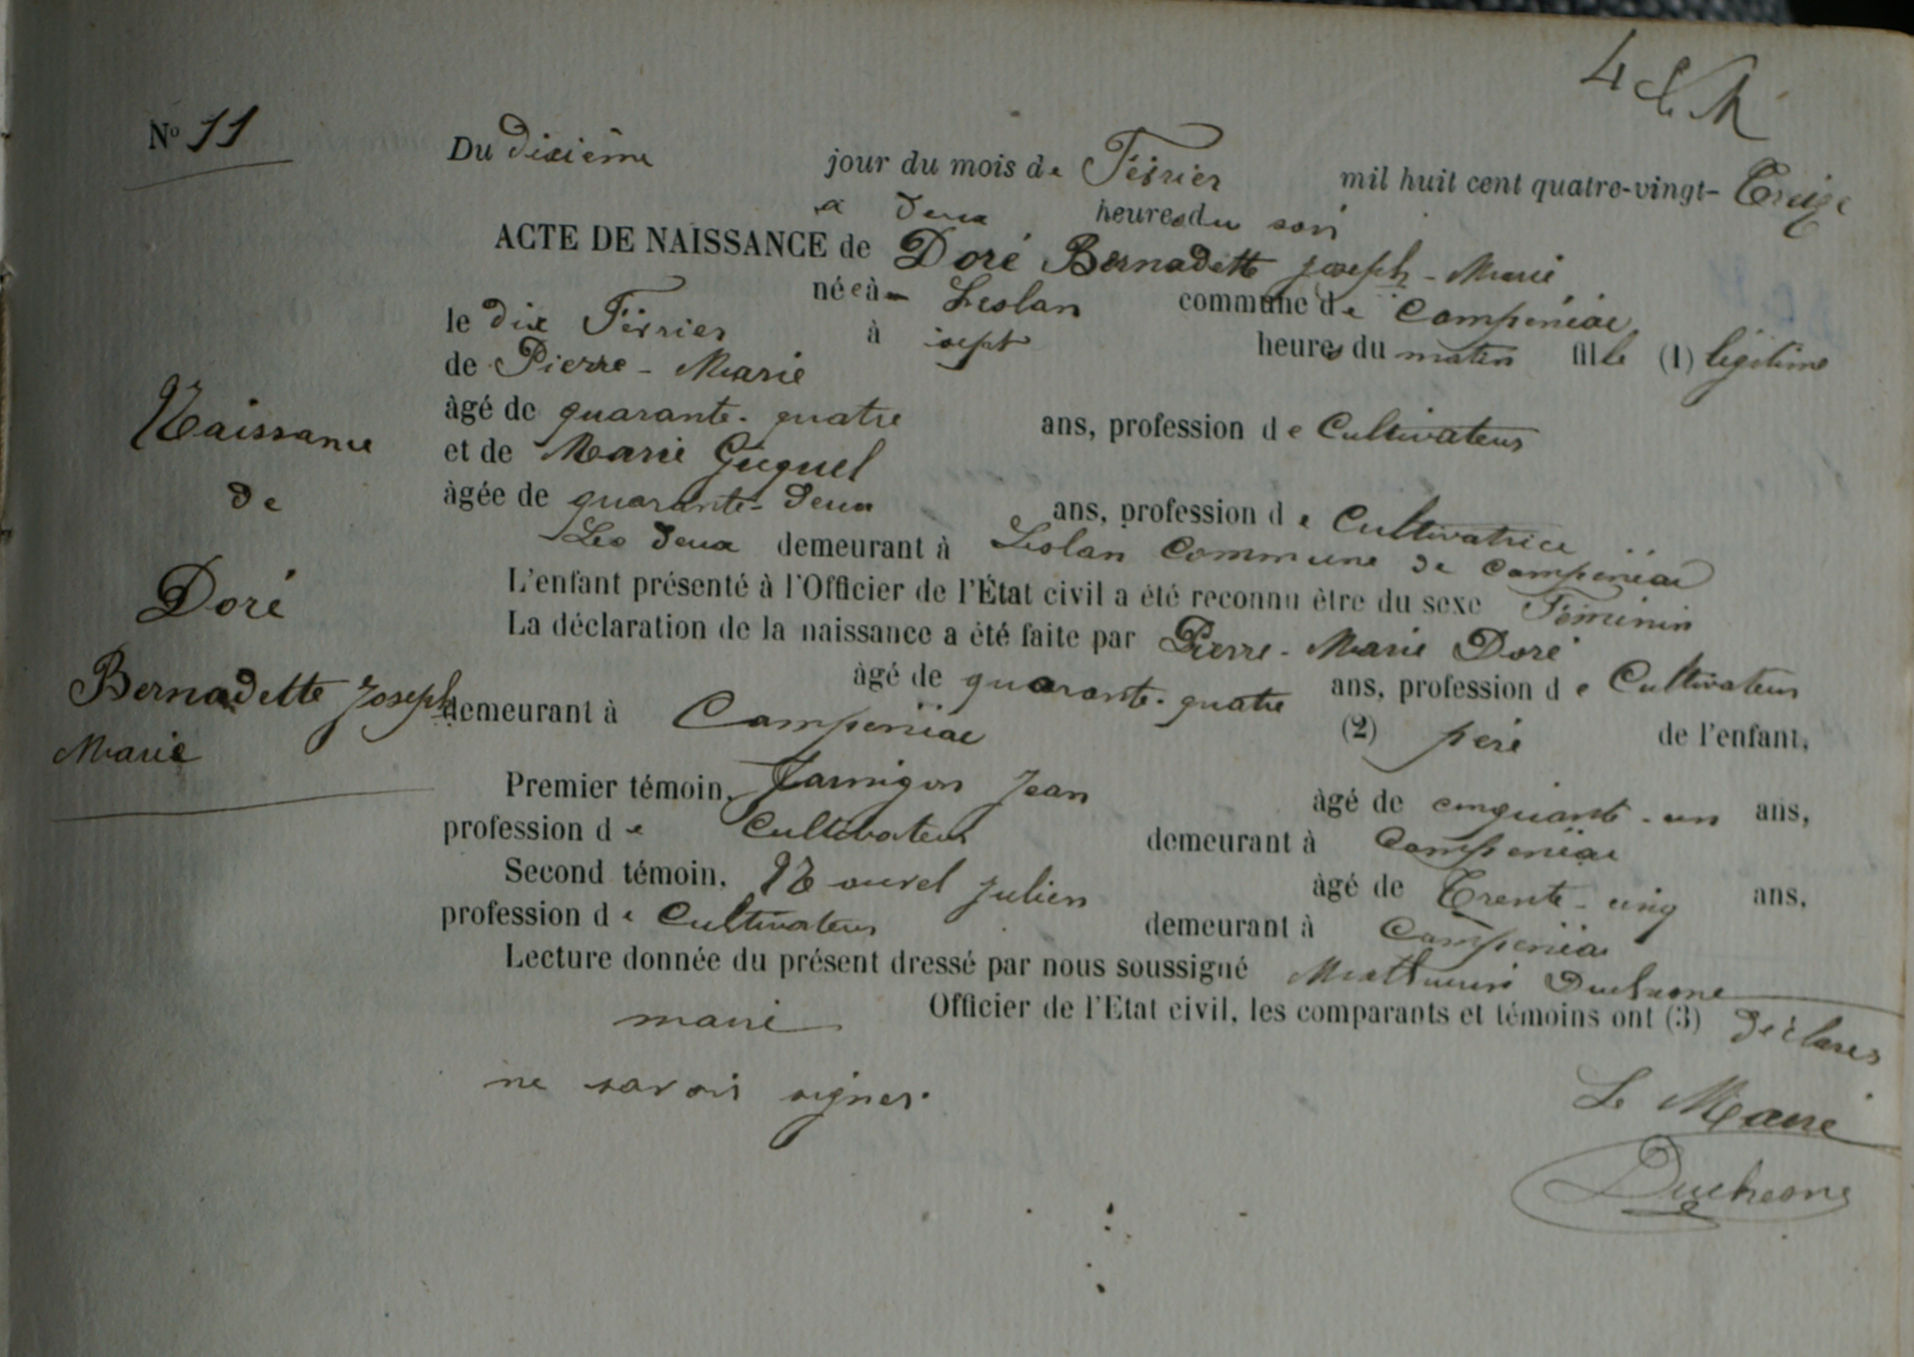 4 & M
Nº 11
Du dixième jour du mois de Février mil huit cent quatre-vingt- Treize
a deux heures du soir
ACTE DE NAISSANCE de Doré Bernadette Joseph - Marie
née à Leslan commune de Campénéac
le dix Février à sept heures du matin fille (1) légitime
de Pierre - Marie
âgé de quarante - quatre ans, profession de Cultivateur
et de Marie Guguel
âgée de quarante - deux ans, profession de Cultivatrice
Les deux demeurant à Leslan Commune de Campénéac
L'enfant présenté à l'Officier de l'État civil a été reconnu être du sexe Féminin
La déclaration de la naissance a été faite par Pierre - Marie Doré
âgé de quarante - quatre ans, profession de Cultivateur
demeurant à Campénéac (2) père de l'enfant,
Premier témoin, Jarnigon Jean âgé de cinquante - un ans,
profession de Cultivateur demeurant à Campénéac
Second témoin, Nouvel Julien âgé de Trente - cinq ans,
profession de Cultivateur demeurant à Campénéac
Lecture donnée du présent dressé par nous soussigné Mathurin Duchesne
maire Officier de l'Etat civil, les comparants et témoins ont (3) déclarés
ne savoir signer.
Le Maire
Duchesne
Naissance
de
Doré
Bernadette Joseph
Marie